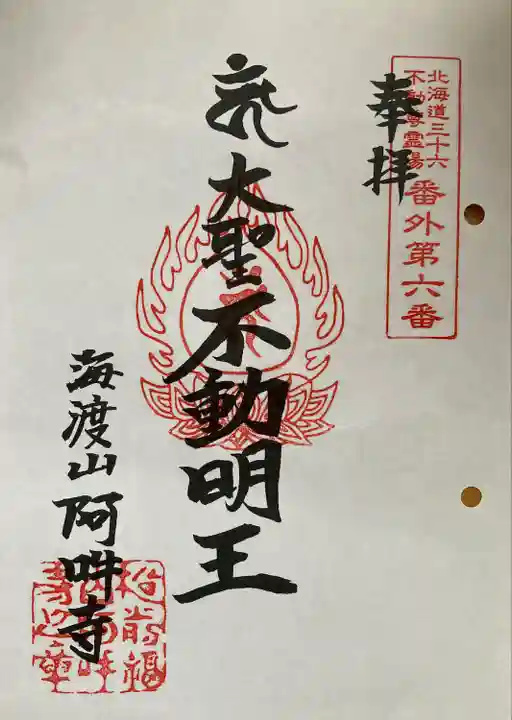 北海道三十六
不動尊霊場
番外第六番
奉拝
大聖不動明王
海渡山阿吽寺
松前福
山阿吽
寺之章